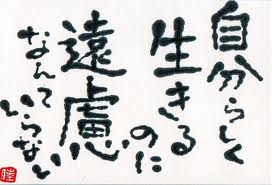 自分らしく
生きる
のに
遠慮
なんて
いらない